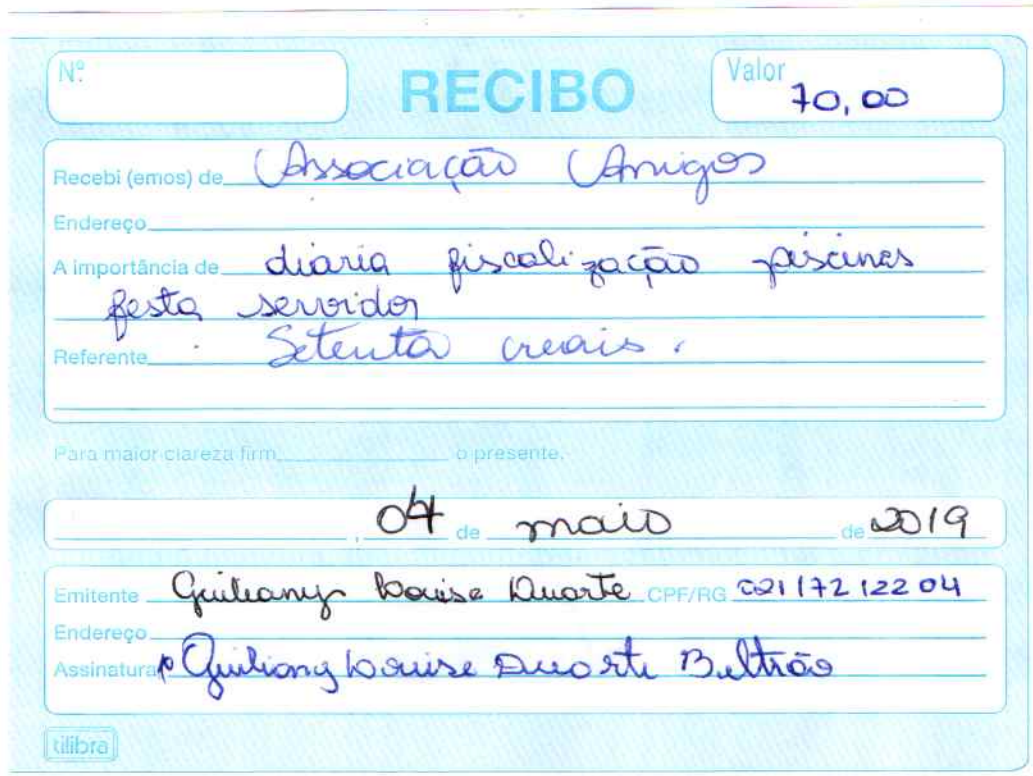 Nº
RECIBO
Valor
70,00
Recebi (emos) de Associação Amigos
Endereço
A importância de diaria fiscalização piscinas
festa servidor
Referente Setenta reais.
Para maior clareza firm o presente.
, 04 de maio de 2019
Emitente Guiliany Louise Duarte CPF/RG 02117212204
Endereço
Assinatura p Guiliany Louise Duarte Beltrão
tilibra